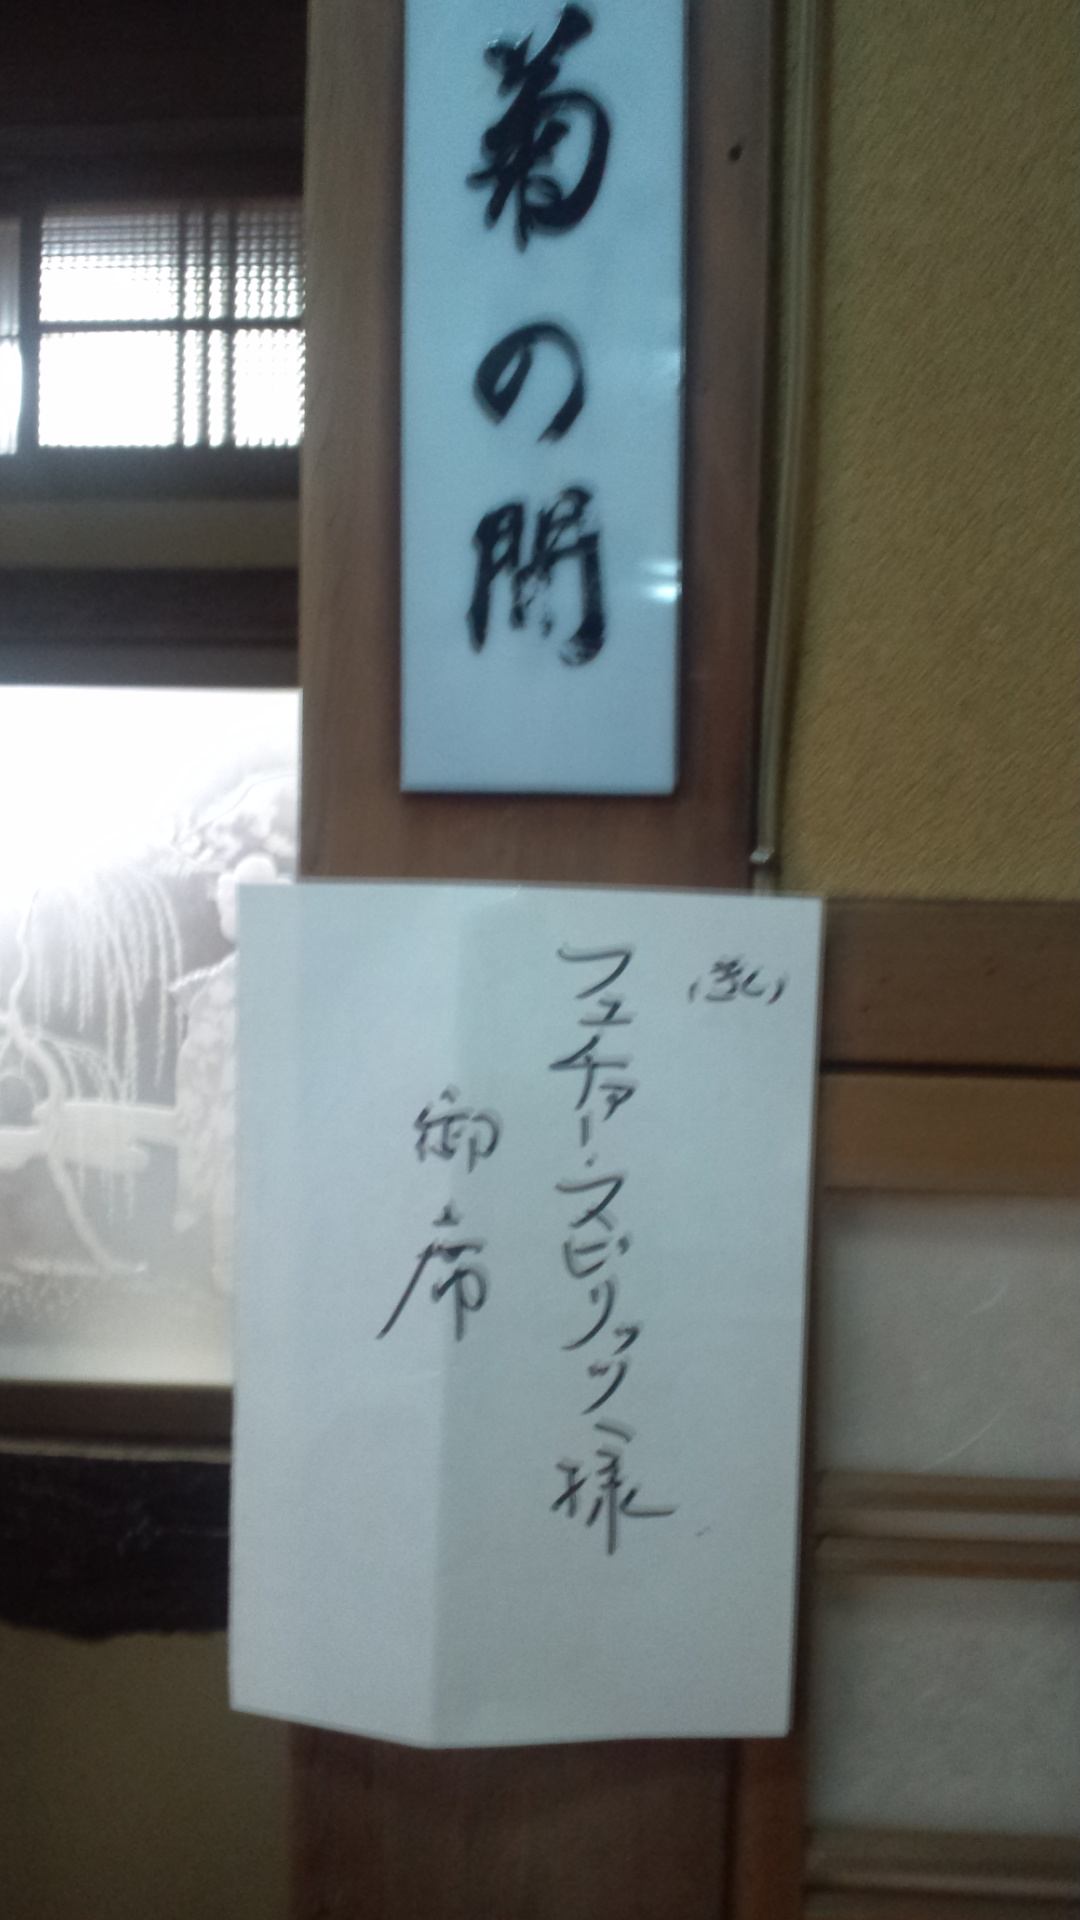 菊の間
フューチャー・スピリッツ様
御席